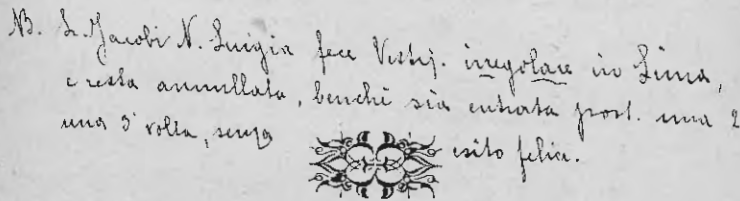 NB. L. Jacobi N. Luigia fece Vestiz. irregolare in Lima,
e resta annullata, benchè sia entrata post. una 2
una 3ª volta, senza esito felice.